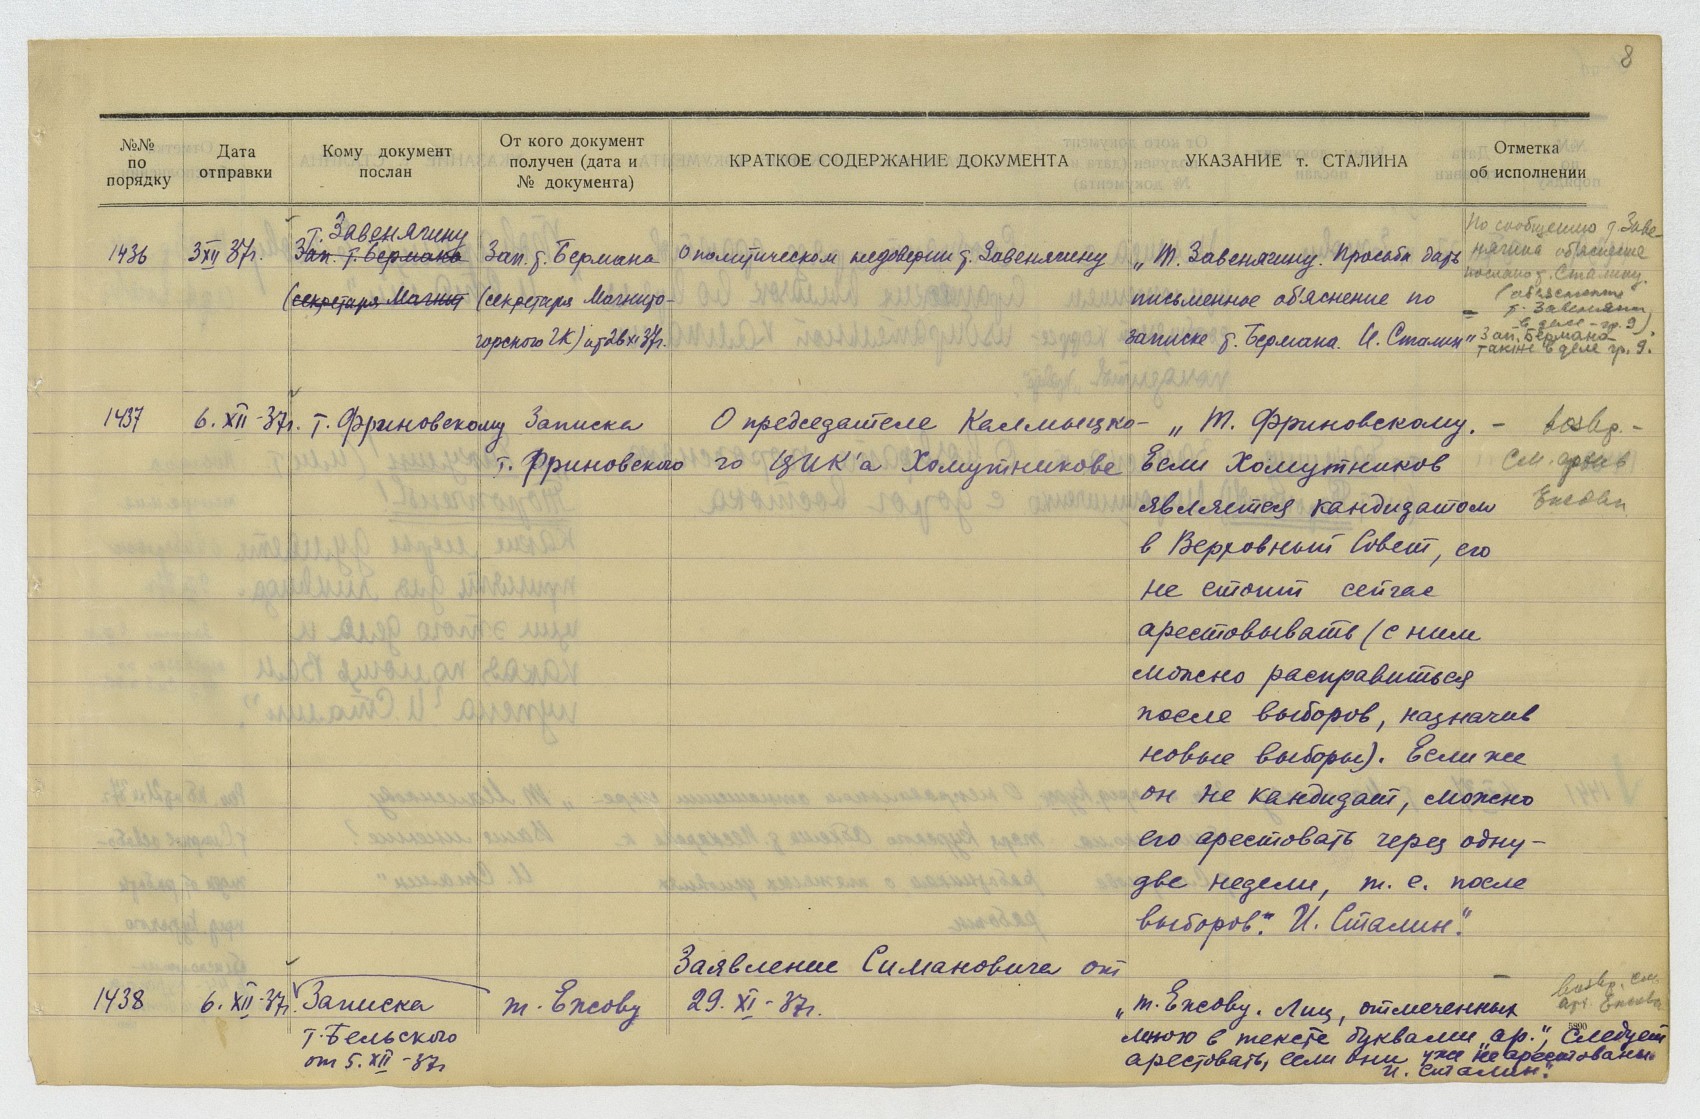 8
№№ по порядку
Дата отправки
Кому документ послан
От кого документ получен (дата и № документа)
КРАТКОЕ СОДЕРЖАНИЕ ДОКУМЕНТА
УКАЗАНИЕ т. СТАЛИНА
Отметка об исполнении
1436
3 XII 37г.
т. Завенягину
Зап. т. Бермана
(секретаря Магнит
Зап. т. Бермана
(секретаря Магнито-
горского ГК) от 26 XI 37г.
О политическом недоверии т. Завенягину
„Т. Завенягину. Просьба дать
письменное объяснение по
записке т. Бермана. И. Сталин"
По сообщению т. Заве-
нягина объяснение
послано т. Сталину
(объяснение
т. Завенягина
в деле - гр. 9).
Зап. Бермана
также в деле гр. 9.
1437
6. XII - 37г.
т. Фриновскому
Записка
т. Фриновского
О председателе Калмыцко-
го ЦИК'а Хомутникове
„Т. Фриновскому. -
Если Хомутников
является кандидатом
в Верховный Совет, его
не стоит сейчас
арестовывать (с ним
можно расправиться
после выборов, назначив
новые выборы). Если же
он не кандидат, можно
его арестовать через одну-
две недели, т. е. после
выборов". И. Сталин".
возвр. -
См. архив
Ежова
1438
6. XII - 37г.
Записка
т. Бельского
от 5. XII - 37г
т. Ежову
Заявление Симановича от
29. XI - 37г.
„т. Ежову. Лиц, отмеченных
мною в тексте буквами „ар.", следует
арестовать, если они уже не арестованы.
И. Сталин".
возвр. См.
арх. Ежова
5890